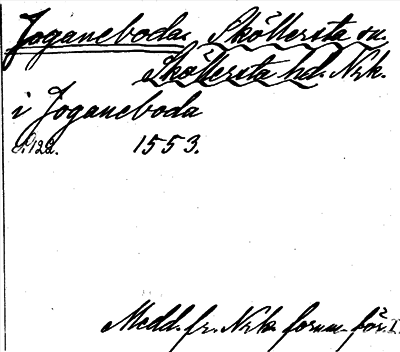 Joganeboda. Sköllersta sn.
Sköllersta hd. Nrk.
i Joganeboda
S. 122. 1553.
Medd. fr. Nrk. fornm. för. I.